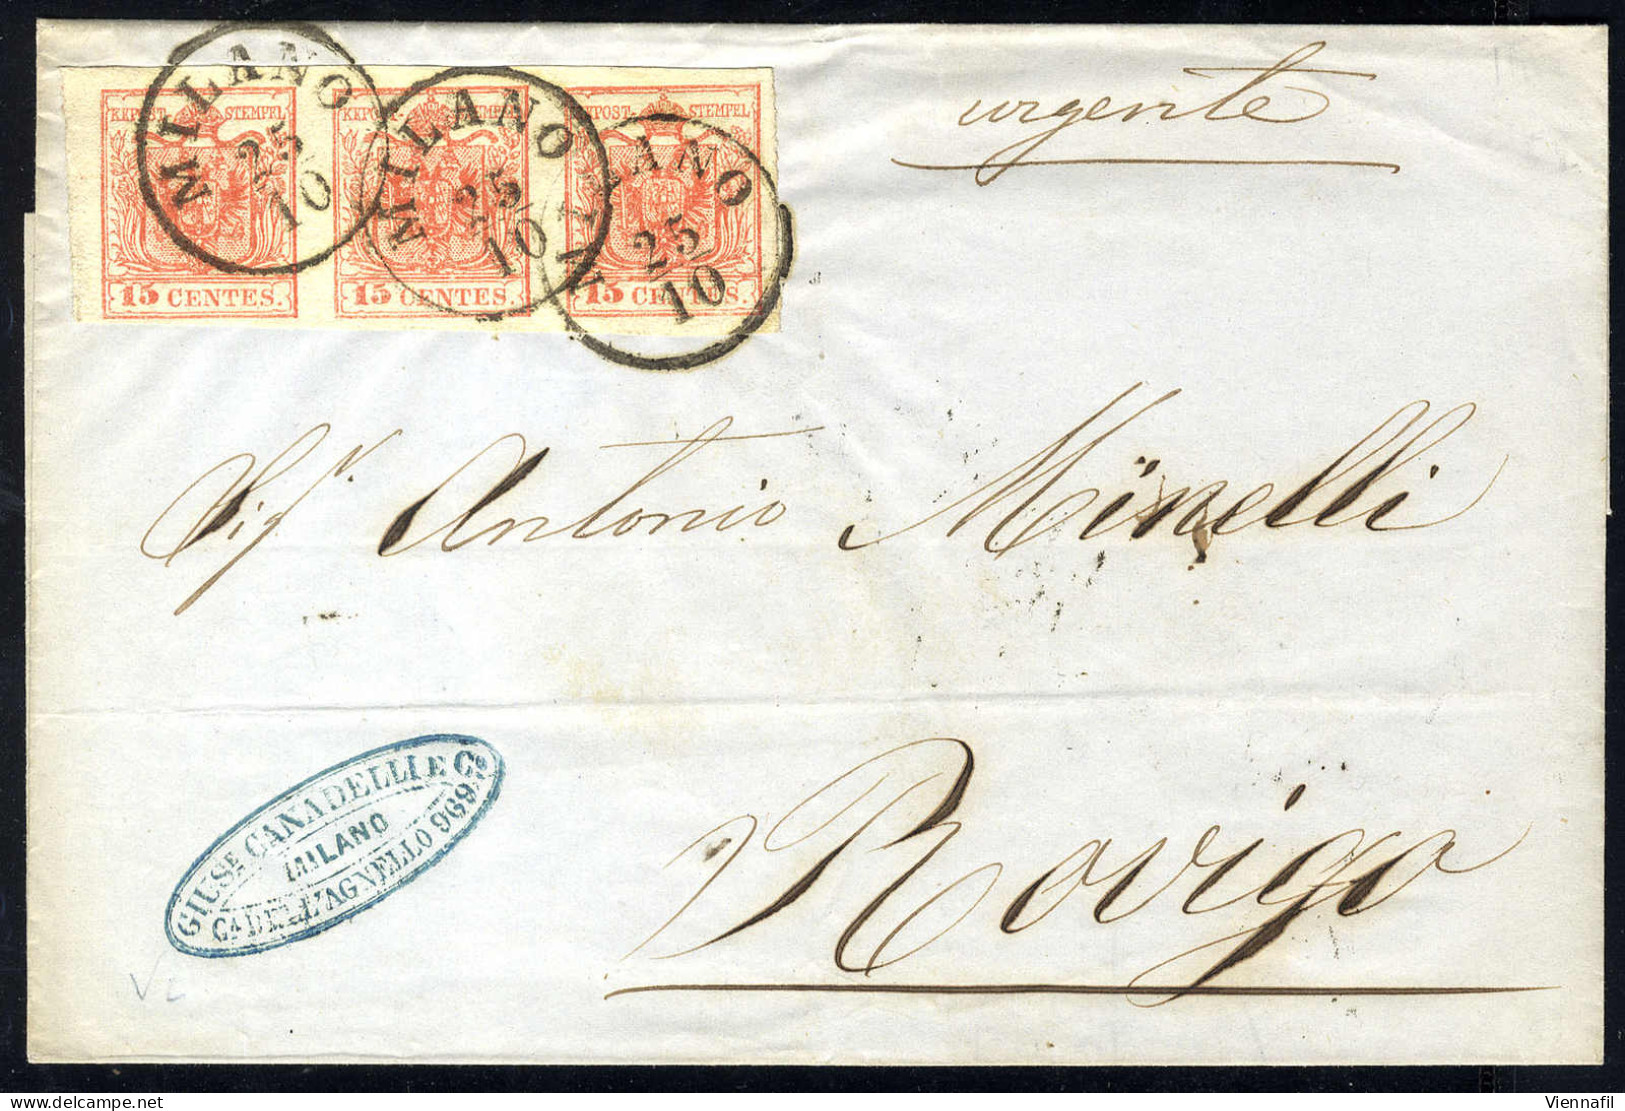 KKPOST-STEMPEL
15 CENTES.
KKPOST-STEMPEL
15 CENTES.
KKPOST-STEMPEL
15 CENTES.
MILANO
25
10
MILANO
25
10
MILANO
25
10
urgente
Sigr. Antonio Minelli
Rovigo
GIUSE. CANADELLI E Co.
MILANO
CA. DELL'AGNELLO 969.
www.delcampe.net
Viennafil